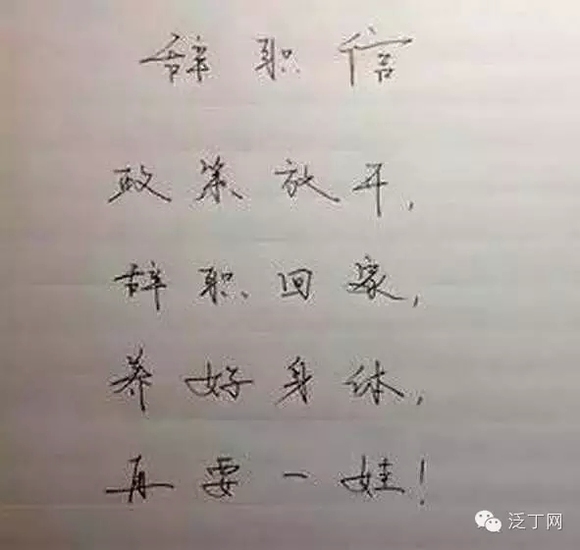 辞职信
政策放开,
辞职回家,
养好身体,
再要一娃!
泛丁网